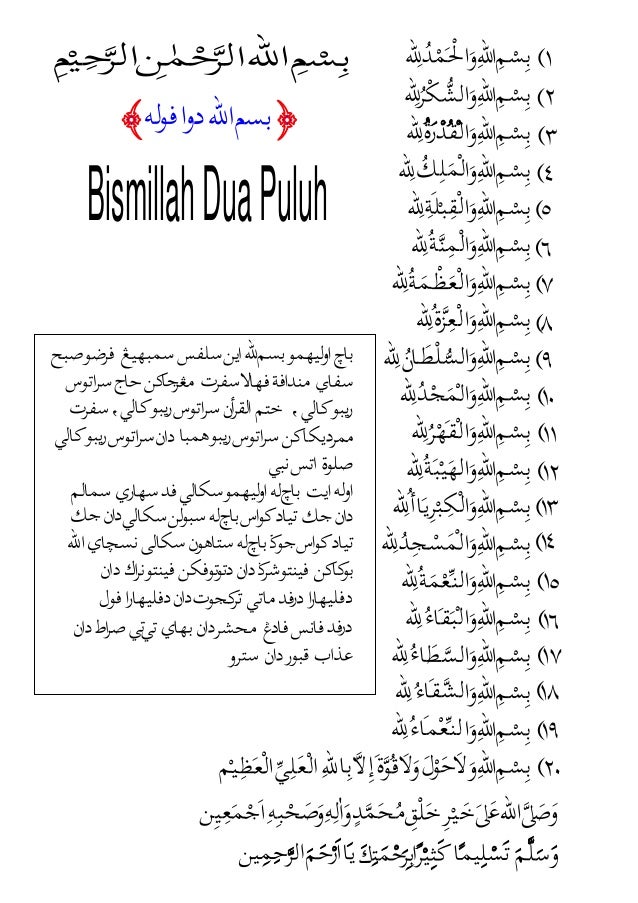 بِسْمِ اللهِ الرَّحْمٰنِ الرَّحِيْمِ
بسم الله دوا فوله
Bismillah Dua Puluh
باچ اوليهمو بسم لله اين سلفس سمبهيڠ فرضو صبح
سفاي مندافة فهلا سفرت مڠرجاكن حاج سراتوس
ريبو كالي , ختم القرأن سراتوس ريبو كالي , سفرت
ممرديكاكن سراتوس ريبو همبا دان سراتوس ريبو كالي
صلوة اتس نبي
اوله ايت باچ‌له اوليهمو سكالي فد سهاري سمالم
دان جك تياد كواس باچ‌له سبولن سكالي دان جك
تياد كواس جوݢ باچ‌له ستاهون سكالى نسچاي الله
بوكاكن فينتو شرݢ دان دتوتوفكن فينتو نراك دان
دفليهارا درفد ماتي تركجوت دان دفليهارا فول
درفد فانس فادڠ محشر دان بهاي تيتي صراط دان
عذاب قبور دان سترو
١) بِسْمِ اللهِ وَالْحَمْدُ لِلّٰهِ
٢) بِسْمِ اللهِ وَالشُّكْرُ لِلّٰهِ
٣) بِسْمِ اللهِ وَالْقُدْرَةُ لِلّٰهِ
٤) بِسْمِ اللهِ وَالْمَلِكُ لِلّٰهِ
٥) بِسْمِ اللهِ وَالْقِبْلَةِ لِلّٰهِ
٦) بِسْمِ اللهِ وَالْمِنَّةُ لِلّٰهِ
٧) بِسْمِ اللهِ وَالْعَظْمَةُ لِلّٰهِ
٨) بِسْمِ اللهِ وَالْعِزَّةُ لِلّٰهِ
٩) بِسْمِ اللهِ وَالسُّلْطَانُ لِلّٰهِ
١٠) بِسْمِ اللهِ وَالْمَجْدُ لِلّٰهِ
١١) بِسْمِ اللهِ وَالْقَهْرُ لِلّٰهِ
١٢) بِسْمِ اللهِ وَالْهَيْبَةُ لِلّٰهِ
١٣) بِسْمِ اللهِ وَالْكِبْرِيَاأُ لِلّٰهِ
١٤) بِسْمِ اللهِ وَالْمَسْجِدُ لِلّٰهِ
١٥) بِسْمِ اللهِ وَالنِّعْمَةُ لِلّٰهِ
١٦) بِسْمِ اللهِ وَالْبَقَاءُ لِلّٰهِ
١٧) بِسْمِ اللهِ وَالسَّطَاءُ لِلّٰهِ
١٨) بِسْمِ اللهِ وَالشَّقَاءُ لِلّٰهِ
١٩) بِسْمِ اللهِ وَالنِّعْمَاءُ لِلّٰهِ
٢٠) بِسْمِ اللهِ وَلَاحَوْلَ وَلَا قُوَّةَ إِلَّا بِاللهِ الْعَلِيِّ الْعَظِيْمِ
وَصَلَّى اللهُ عَلَى خَيْرِ خَلْقِ مُحَمَّدٍ وَاٰلِهِ وَصَحْبِهِ اَجْمَعِيْنِ
وَسَلَّمَ تَسْلِيمًا كَثِيْرًا بِرَحْمَتِكَ يَا اَرْحَمَ الرَّحِمِيْن